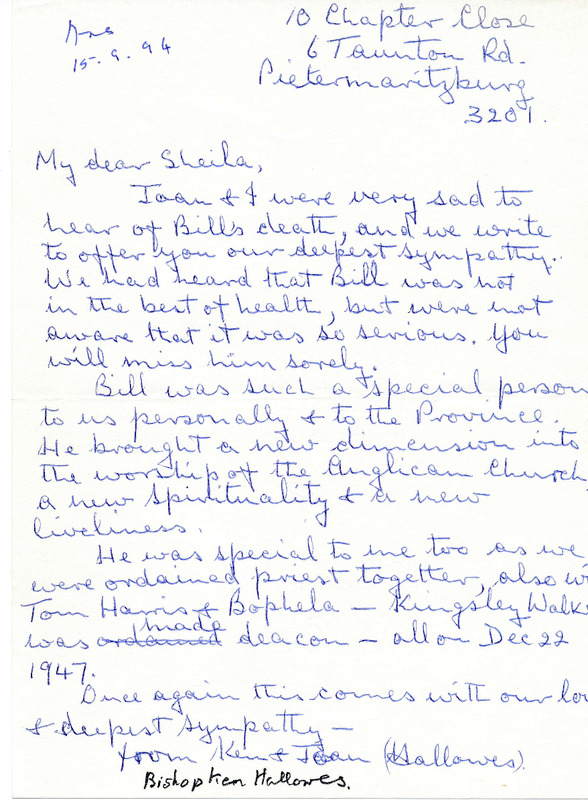 Ans
15.9.94
10 Chapter Close
6 Taunton Rd.
Pietermaritzburg
3201.
My dear Sheila,
Joan & I were very sad to
hear of Bill's death, and we write
to offer you our deepest sympathy.
We had heard that Bill was not
in the best of health, but were not
aware that it was so serious. You
will miss him sorely.
Bill was such a special person
to us personally & to the Province.
He brought a new dimension into
the worship of the Anglican Church,
a new spirituality & a new
liveliness.
He was special to me too as we
were ordained priest together, also wi
Tom Harris & Bophela – Kingsley Walke
was ordained made deacon – all on Dec 22
1947.
Once again this comes with our lov
& deepest sympathy –
from Ken & Joan (Hallowes).
Bishop Ken Hallowes.